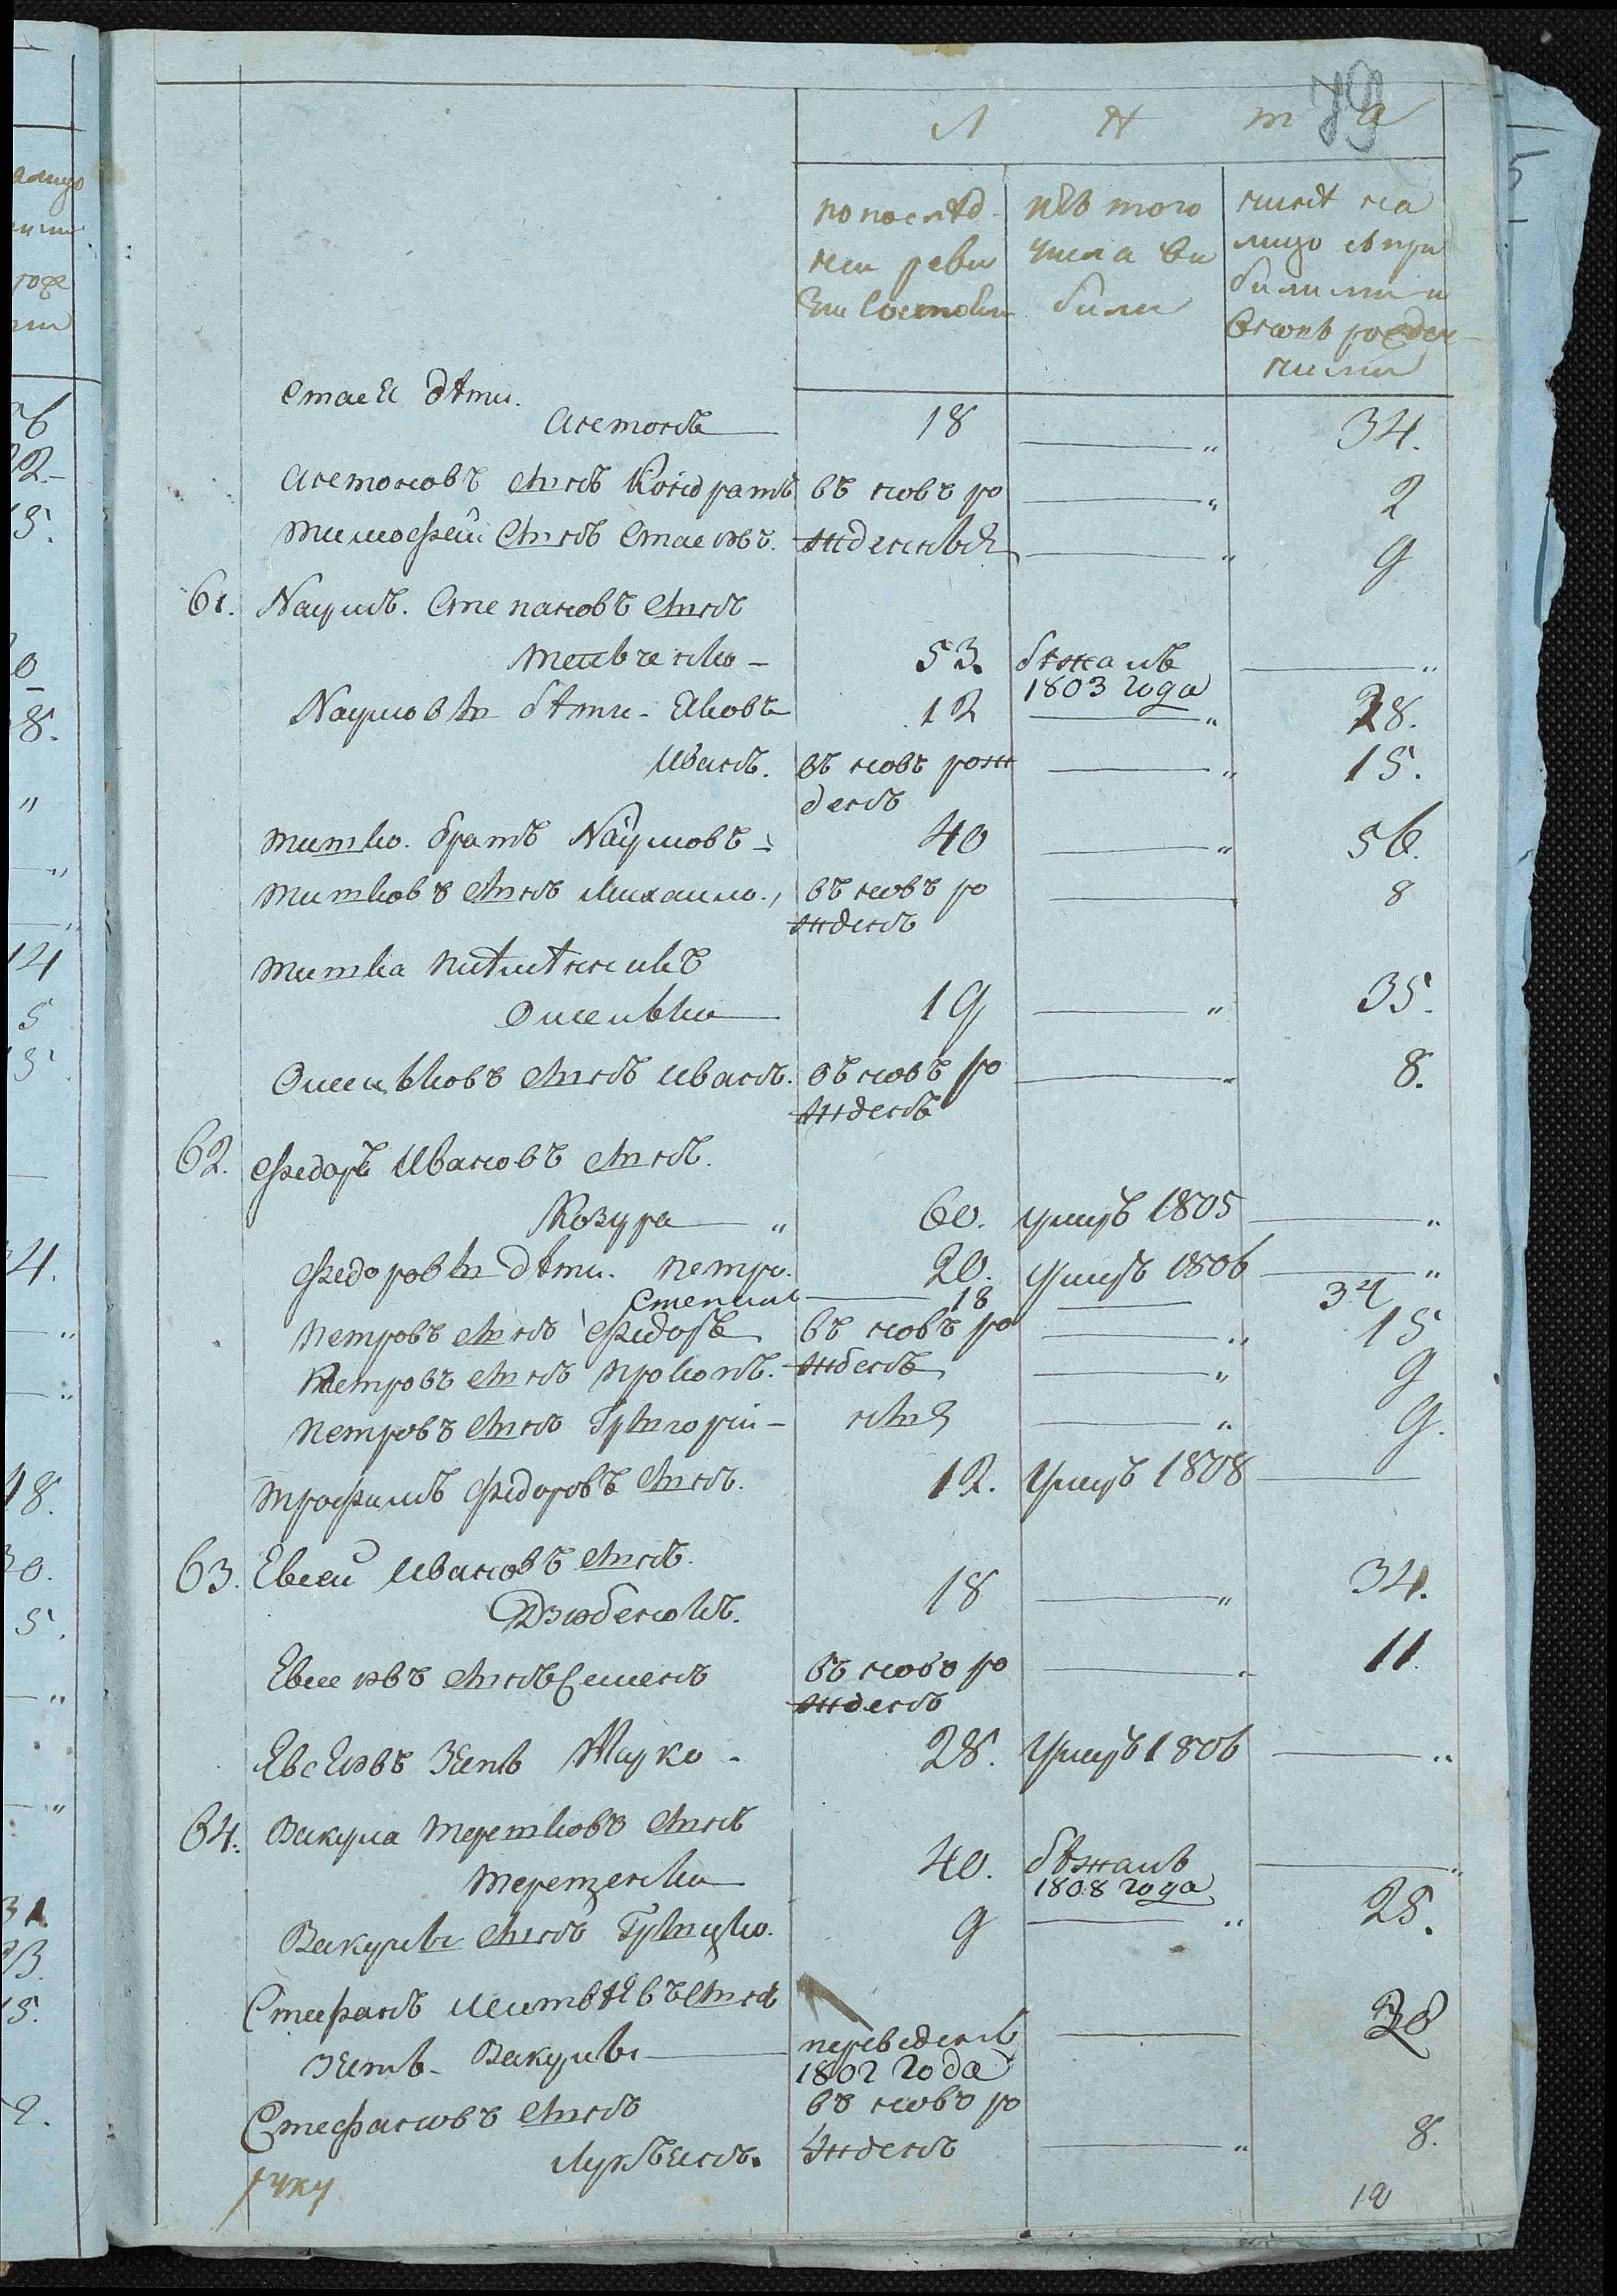 79
Л Ѣ т а
по послѣд-
неи реви
зіи Состояли
изъ того
числа вы
были
нынѣ на
лицо съ при
былыми и
вновь рожден-
ными
Стася дѣти.
Антонъ 18 — „ 34.
Антоновъ сынъ Кондратъ въ новѣ ро — „ 2
Тимофей сынъ Стасювъ. жденныя — „ 9
61. Наумъ. Степановъ сынъ
53. бѣжалъ — „
1803 года
Наумовы дѣти - Яковъ 12 — „ 28.
Иванъ. въ новѣ рож — „ 15.
денъ
Титко. братъ Наумовъ - 40 — „ 56.
Титковъ сынъ Михаило. въ новѣ ро — 8
жденъ
Титка племѣнникъ
Омелько 19 — „ 35.
Омельковъ сынъ Иванъ. въ новѣ ро — 8.
жденъ
62. Федоръ Ивановъ сынъ.
Козура „ 60. умеръ 1805 — „
Федоровы дѣти. Петро. 20. умеръ 1806 — „
Степанъ — 18 — 34
Петровъ сынъ Федоръ въ новѣ ро — „ 15
Петровъ сынъ Прокопъ. жденъ — „ 9
Петровъ сынъ Григорій - ныя — „ 9.
Трофимъ Федоровъ сынъ. 12. Умеръ 1808 —
63. Евсей Ивановъ сынъ.
Дзюбенокъ. 18 — „ 34.
Евсеювъ сынъ Семенъ въ новѣ ро — „ 11.
жденъ
Евсеювъ Зять Марко - 28. Умеръ 1806 — „
64. Вакула Терешковъ сынъ
Терещенко 40. бѣжалъ — „
1808 года
Вакулы сынъ Грыцко. 9 — „ 25.
Стефанъ Матвѣевъ сынъ
зять - Вакулы — переведенъ — 28
1802 года
Стефановъ сынъ въ новѣ ро
Лукьянъ. жденъ — „ 8.
12